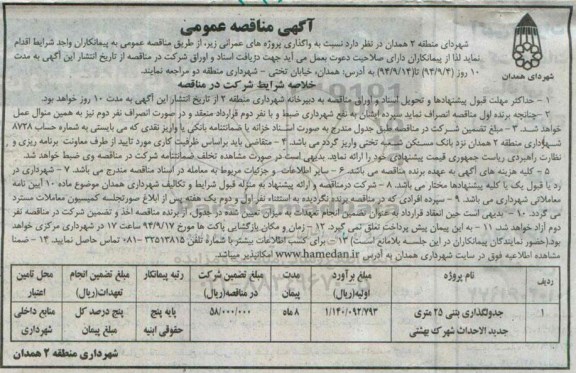 آگهی مناقصه عمومی
شهرداری همدان
شهرداری منطقه ۲ همدان در نظر دارد نسبت به واگذاری پروژه های عمرانی زیر، از طریق مناقصه عمومی به پیمانکاران واجد شرایط اقدام
نماید لذا از پیمانکاران دارای صلاحیت دعوت بعمل می آید جهت دریافت اسناد و اوراق شرکت در مناقصه از تاریخ انتشار این آگهی به مدت
۱۰ روز (۹۴/۹/۴ تا ۹۴/۹/۱۴) به آدرس: همدان، خیابان تختی - شهرداری منطقه دو مراجعه نمایند.
خلاصه شرایط شرکت در مناقصه
۱ - حداکثر مهلت قبول پیشنهادها و تحویل اسناد و اوراق مناقصه به دبیرخانه شهرداری منطقه ۲ از تاریخ انتشار این آگهی به مدت ۱۰ روز خواهد بود.
۲ - چنانچه برنده اول مناقصه انصراف نماید سپرده ایشان به نفع شهرداری ضبط و با نفر دوم قرارداد منعقد و در صورت انصراف نفر دوم نیز به همین منوال عمل
خواهد شد. ۳ - مبلغ تضمین شرکت در مناقصه طبق جدول مندرج به صورت اسناد خزانه یا ضمانتنامه بانکی یا واریز نقدی که می بایستی به شماره حساب ۸۷۲۸
شهرداری منطقه ۲ همدان نزد بانک مسکن شعبه تختی واریز گردد می باشد. ۴ - متقاضی باید براساس ظرفیت کاری مورد تایید از طرف معاونت برنامه ریزی و
نظارت راهبردی ریاست جمهوری قیمت پیشنهادی خود را ارائه نماید. بدیهی است در صورت مشاهده تخلف ضمانتنامه شرکت در مناقصه وی ضبط خواهد شد.
۵ - کلیه هزینه های آگهی به عهده برنده مناقصه می باشد. ۶ - سایر اطلاعات و جزئیات مربوط به معامله در اسناد مناقصه مندرج می باشد. ۷ - شهرداری در
رد یا قبول یک یا کلیه پیشنهادها مختار می باشد. ۸ - شرکت در مناقصه و ارائه پیشنهاد به منزله قبول شرایط و تکالیف شهرداری همدان موضوع ماده ۱۰ آیین نامه
معاملاتی شهرداری می باشد. ۹ - سپرده افرادی که در مناقصه برنده نگردیده به استثناء نفر اول و دوم یک هفته پس از ابلاغ صورتجلسه کمیسیون معاملات مسترد
می گردد. ۱۰ - بدیهی است حین انعقاد قرارداد به عنوان تضمین انجام تعهدات به میزان تعیین شده در جدول، از برنده مناقصه اخذ و تضمین شرکت در مناقصه نفر
دوم آزاد خواهد شد. ۱۱ - به این پیمان پیش پرداخت تعلق نمی گیرد. ۱۲ - زمان و مکان بازگشایی پاکت ها مورخ ۹۴/۹/۱۷ ساعت ۱۷ در شهرداری مرکزی خواهد
بود(حضور نمایندگان پیمانکاران در این جلسه بلامانع است) ۱۳ - برای کسب اطلاعات بیشتر با شماره تلفن ۳۲۵۱۳۸۱۵-۰۸۱ تماس حاصل نمایید. ۱۴ - ضمنا
مشاهده اطلاعیه فوق در سایت شهرداری همدان به آدرس www.hamedan.ir امکانپذیر میباشد.
ردیف | نام پروژه | مبلغ برآورد اولیه(ریال) | مدت پیمان | مبلغ تضمین شرکت در مناقصه(ریال) | رتبه پیمانکار | مبلغ تضمین انجام تعهدات(ریال) | محل تامین اعتبار
۱ | جدولگذاری بتنی ۲۵ متری جدید الاحداث شهرک بهشتی | ۱/۱۴۰/۰۹۲/۷۹۳ | ۸ ماه | ۵۸/۰۰۰/۰۰۰ | پایه پنج حقوقی ابنیه | پنج درصد کل مبلغ پیمان | منابع داخلی شهرداری
شهرداری منطقه ۲ همدان